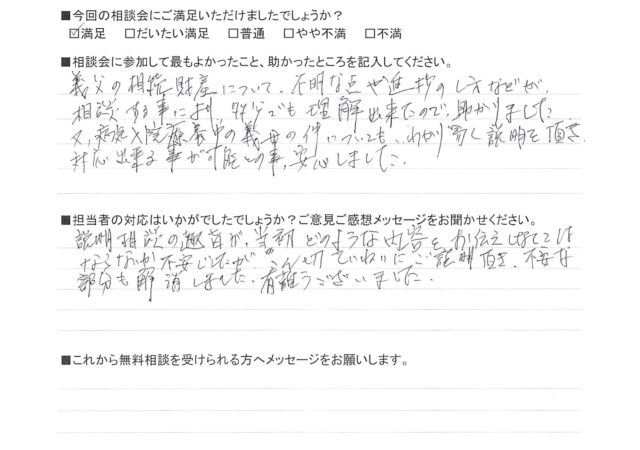 ■今回の相談会にご満足いただけましたでしょうか？
☑満足 □だいたい満足 □普通 □やや不満 □不満
■相談会に参加して最もよかったこと、助かったところを記入してください。
義父の相続財産について、不明な点や進捗のし方などが、
相談する事により、多少でも理解出来たので、助かりました
又、病院入院療養中の義母の件についても、わかり易く説明を頂き、
対応出来る事が可能との事、安心しました。
■担当者の対応はいかがでしたでしょうか？ご意見ご感想メッセージをお聞かせください。
説明相談の趣旨が、当初どのような内容をお伝えしなくては
ならないか不安でしたが、 ていねいにご説明頂き、不安な
部分も解消しました。有難うございました。
■これから無料相談を受けられる方へメッセージをお願いします。